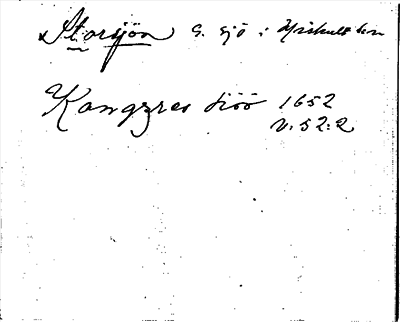 Storsjön S. sjö i Hishult sn
Kongzres siöö 1652
V:52:2